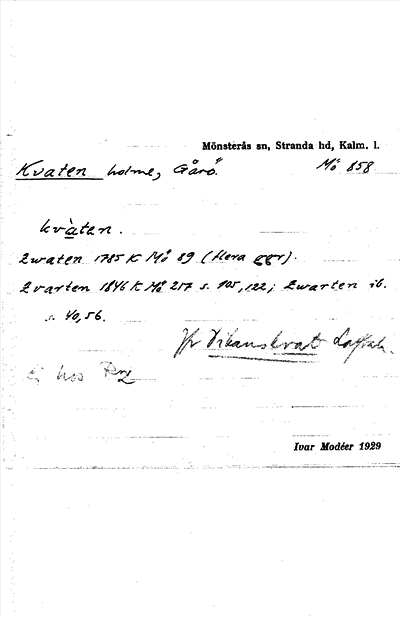 Mönsterås sn, Stranda hd, Kalm. l.
Kvaten holme, Gårö. Mö 858
kvàten.
Qwaten 1785 K Mö 89 (flera ggr).
Qvarten 1846 K Mö 217 s. 105, 122; Qwarten ib.
s. 40, 56.
Jfr Vikanskvat
Ej hos
Ivar Modéer 1929